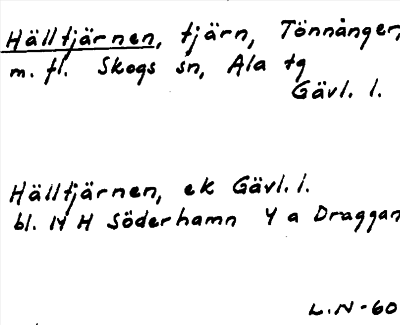 Hälltjärnen, tjärn, Tönnånger,
m. fl. Skogs sn, Ala tg
Gävl. l.
Hälltjärnen, ek Gävl. l.
bl. 14 H Söderhamn 4 a Draggan
L.N-60